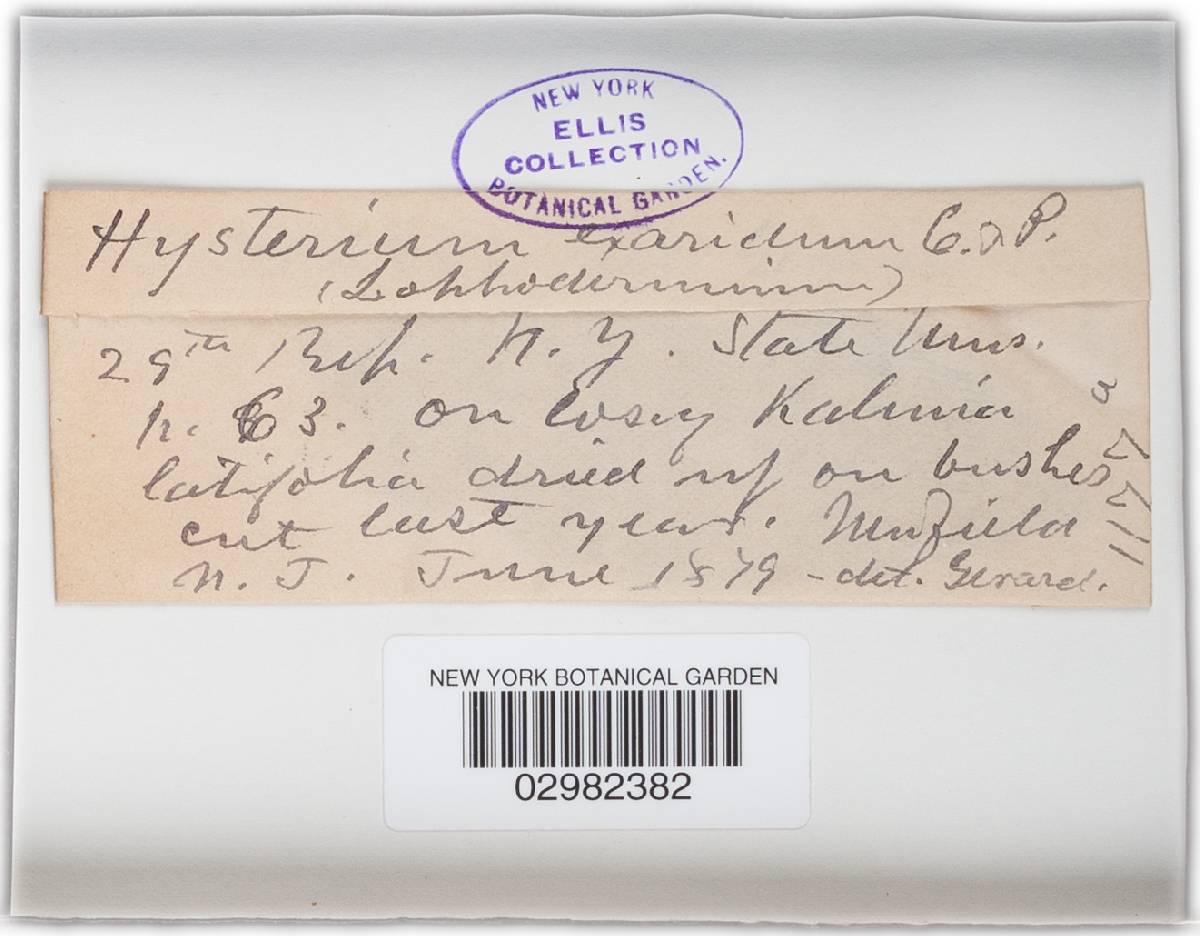 NEW YORK
ELLIS
COLLECTION
BOTANICAL GARDEN.
Hysterium exaridum C. & P.
(Lophodermium)
29th Rep. N. Y. State Mus.
p. 63. on Kalmia
latifolia dried up on bushes
cut last year. Newfield
N. J. June 1879 - det. Gerard.
NEW YORK BOTANICAL GARDEN
02982382